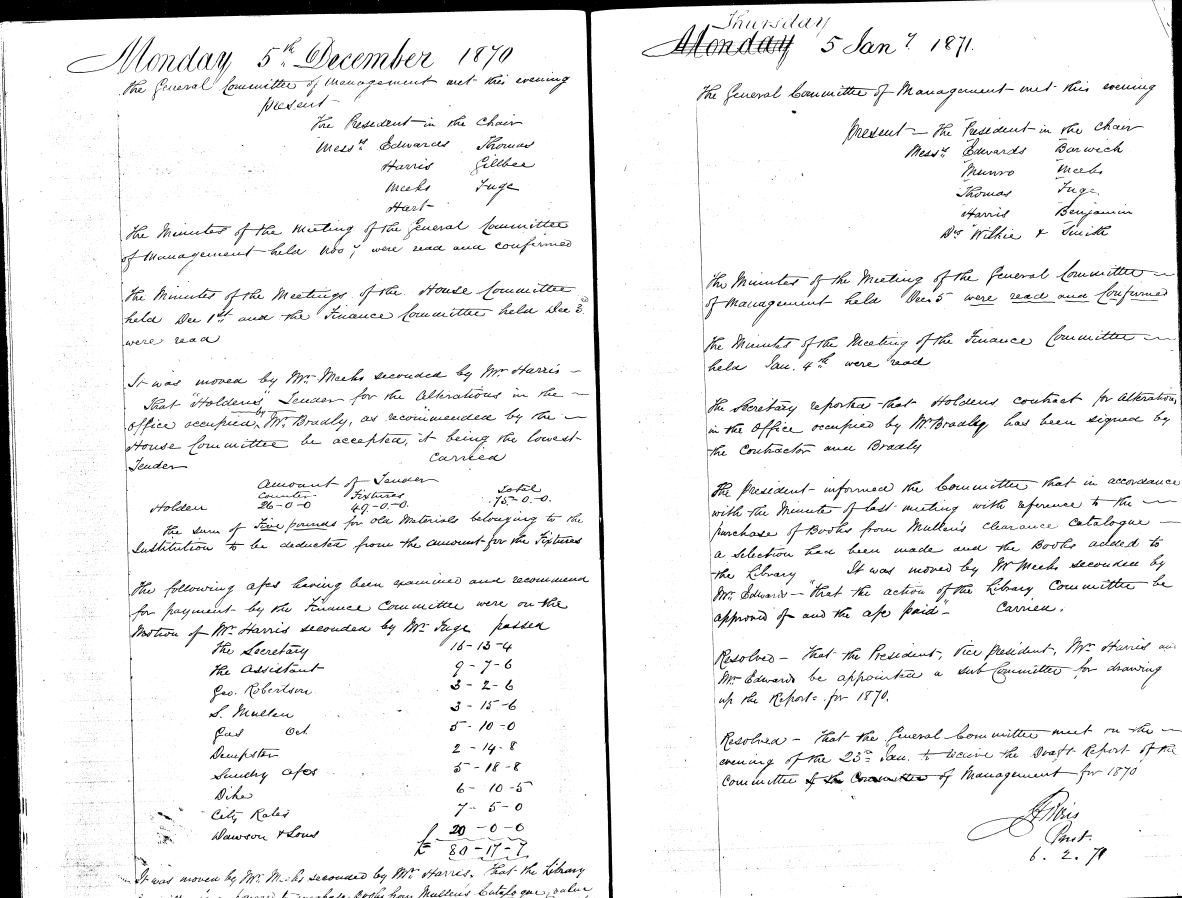 Monday 5th December 1870
The General Committee of Management met this evening
present
The President in the Chair
Messrs Edwards Thomas
Harris Gillbee
Meeks Fuge
Hart
The Minutes of the Meeting of the General Committee
of Management held Nov 7, were read and confirmed
The Minutes of the Meetings of the House Committee
held Dec 1st and the Finance Committee held Dec 3rd
were read
It was moved by Mr Meeks seconded by Mr Harris –
That "Holdens" Tender for the Alterations in the –
Office occupied by Mr Bradly, as recommended by the –
House Committee be accepted, it being the lowest
Tender carried
Amount of Tender
Counter Fixtures Total
Holden 26-0-0 49-0-0. 75-0-0.
The sum of Five pounds for old Materials belonging to the
Institution to be deducted from the amount for the Fixtures
The following a/cs having been examined and recommend
for payment by the Finance Committee were on the
Motion of Mr Harris seconded by Mr Fuge passed
The Secretary 16-13-4
The Assistant 9-7-6
Geo. Robertson 3-2-6
S. Mullen 3-15-6
Gas Oct 5-10-0
Dempster 2-14-8
Sundry a/cs 5-18-8
Dike 6-10-5
City Rates 7-5-0
Dawson & Sons 20-0-0
£ 80-17-7
It was moved by Mr Meeks seconded by Mr Harris. That the Library
to purchase Books from Mullen's Catalogue, value
Thursday
Monday 5 Jany 1871.
The General Committee of Management met this evening
present – The President in the Chair
Messrs Edwards Barwich
Munro Meeks
Thomas Fuge
Harris Benjamin
Drs Wilkie & Smith
The Minutes of the Meeting of the General Committee –
of Management held Dec. 5 were read and Confirmed
The Minutes of the Meeting of the Finance Committee –
held Jan. 4th were read
The Secretary reported that Holdens contract for Alterations
in the Office occupied by Mr Bradly, has been signed by
the Contractor and Bradly
The President informed the Committee that in accordance
with the Minute of last meeting with reference to the –
purchase of Books from Mullen's clearance catalogue –
a selection had been made and the Books added to
the Library It was moved by Mr Meeks seconded by
Mr Edwards – "That the action of the Library Committee be
approved of and the a/c paid" – Carried.
Resolved – That the President, Vice President, Mr Harris and
Mr Edwards be appointed a sub Committee for drawing
up the Report for 1870.
Resolved – That the General Committee meet on the –
evening of the 23rd Jan. to receive the Draft Report of the
Committee of the Committee of Management for 1870
Prest.
6. 2. 71